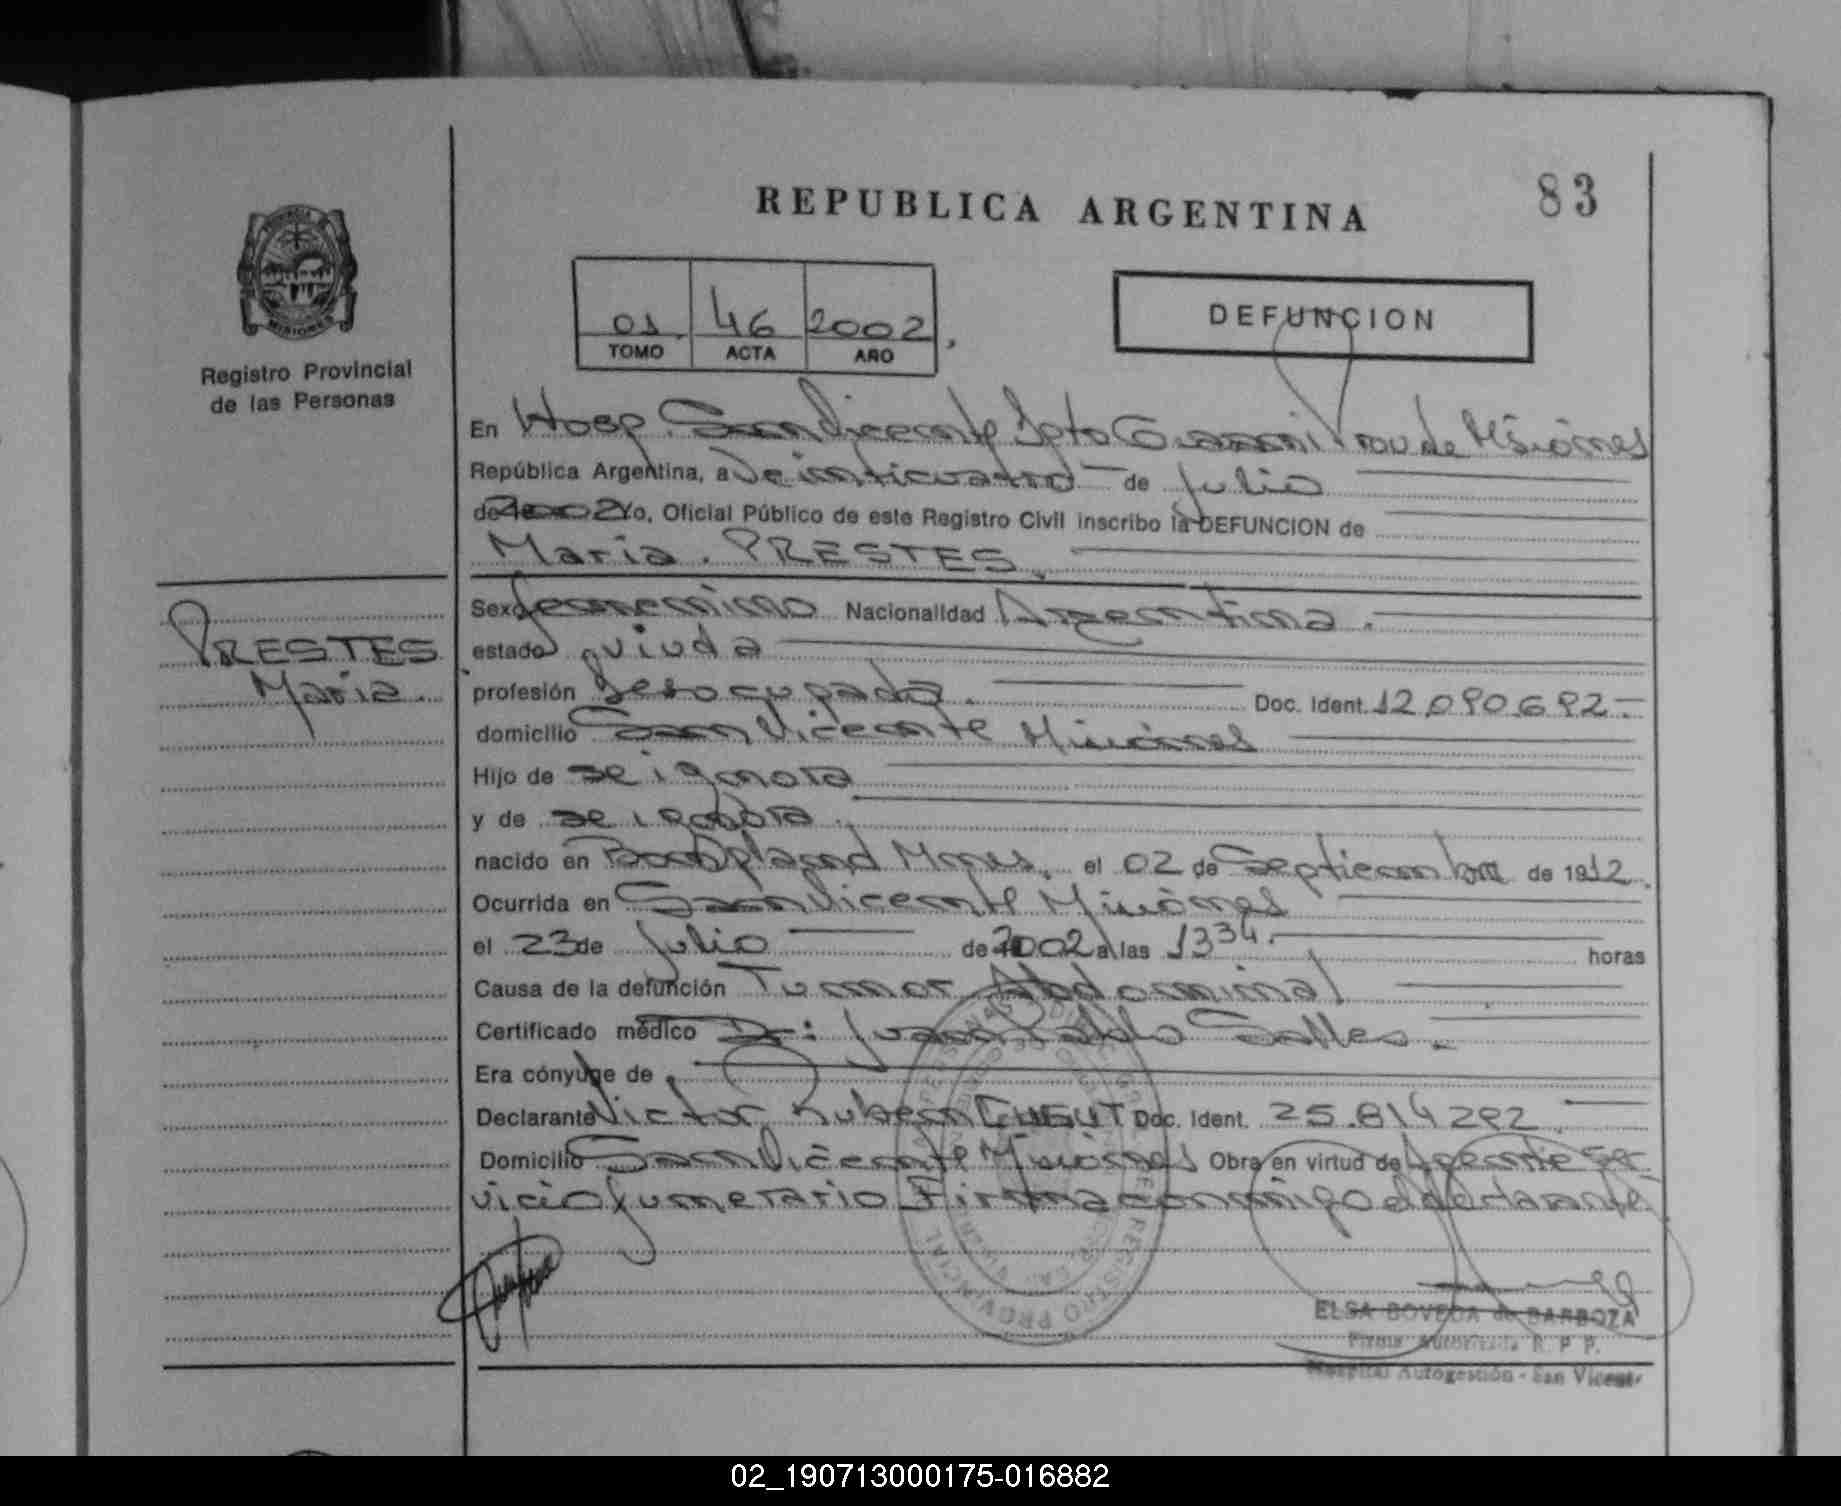 83
REPUBLICA ARGENTINA
MISIONES
Registro Provincial
de las Personas
01 46 2002
TOMO ACTA AÑO
DEFUNCION
En Hosp. San Vicente Dpto Guarani Prov de Misiones
República Argentina, a Veinticuatro de Julio
de 2002 Yo, Oficial Público de este Registro Civil inscribo la DEFUNCION de
Maria. PRESTES.
PRESTES
Maria.
Sexo femenino Nacionalidad Argentina.
estado viuda
profesión desocupada. Doc. Ident. 12.090.692.-
domicilio San Vicente Misiones
Hijo de se ignora
y de se ignora.
nacido en Bonpland Mnes. el 02 de Septiembre de 1912.
Ocurrida en San Vicente Misiones
el 23 de Julio de 2002 a las 1334. horas
Causa de la defunción Tumor Abdominal
Certificado médico Dr: Juan Pablo Salles.
Era cónyuge de
Declarante Victor Ruben Doc. Ident. 25.814292.
Domicilio San Vicente Misiones Obra en virtud de Agente Ser
vicio funerario Firma conmigo el declarante
REGISTRO PROVINCIAL
ELSA BOVEDA de BARBOZA
Firma Autorizada R. P. P.
Hospital Autogestión - San Vicente
02_190713000175-016882